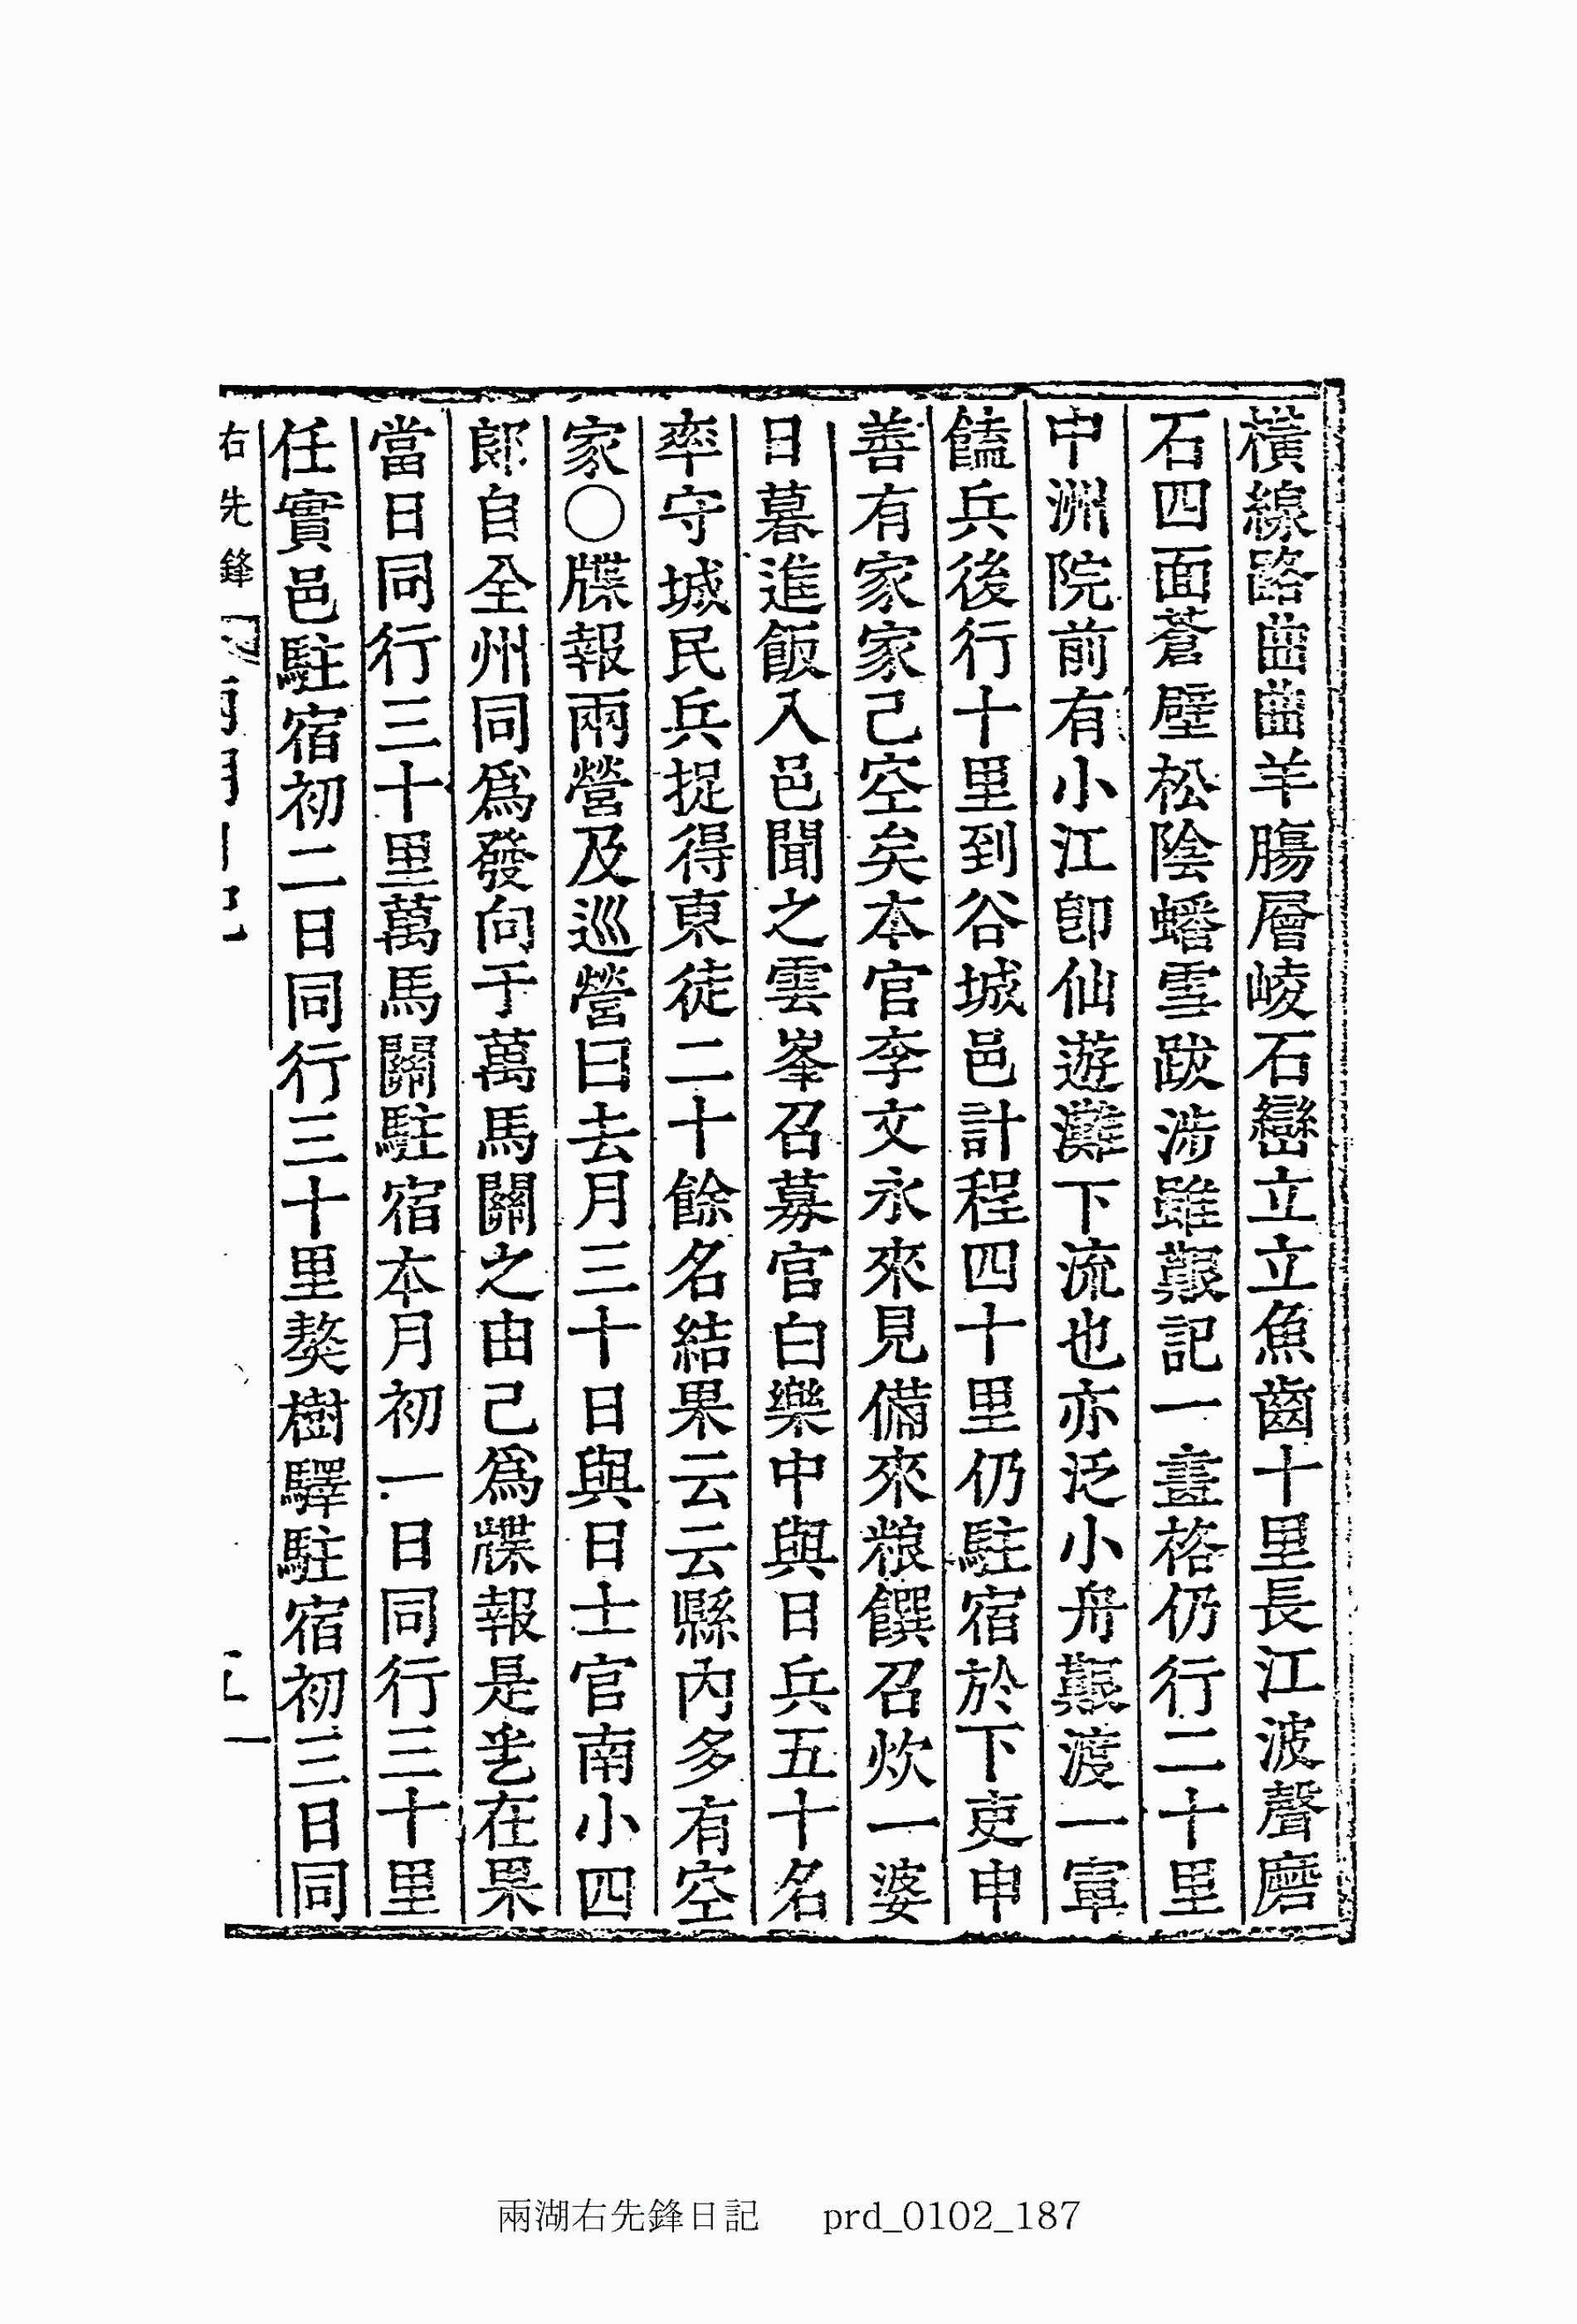 橫線路齒齒羊膓層崚石巒立立魚齒十里長江波聲磨
石四面蒼壁松陰蟠雪跋涉雖艱記一畵格仍行二十里
中洲院前有小江卽仙遊灘下流也亦泛小舟艱渡一軍
饁兵後行十里到谷城邑計程四十里仍駐宿於下吏申
善有家家己空矣本官李文永來見備來粮饌召炊一婆
日暮進飯入邑聞之雲峯召募官白樂中與日兵五十名
率守城民兵捉得東徒二十餘名結果云云縣內多有空
家○牒報兩營及巡營曰去月三十日與日士官南小四
郞自全州同爲發向于萬馬關之由己爲牒報是乎在果
當日同行三十里萬馬關駐宿本月初一日同行三十里
任實邑駐宿初二日同行三十里獒樹驛駐宿初三日同
右先鋒
兩湖右先鋒日記 prd_0102_187